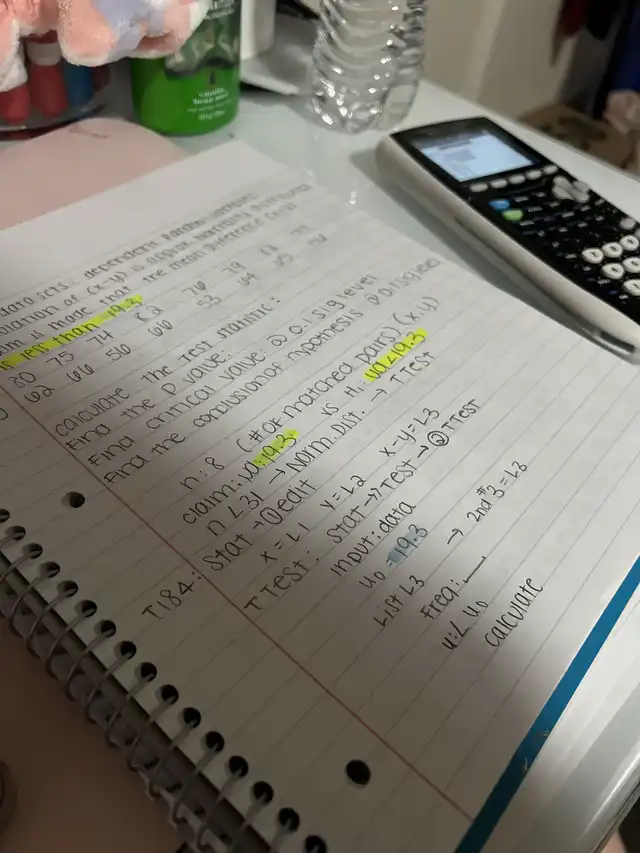 data sets: dependent random samples
of (x-y) is approx. normally
is made that the mean difference (x-y)
less than 19.3
80 75 74 82 76 79
62 66 56 66 53 64 65
calculate the test statistic:
find the p value:
find critical value: @ 0.1 sig level
find the conclusion of hypothesis @ 0.1 sig level
n: 8 (# of matched pairs) (x,y)
claim: ud=19.3 vs H1: ud<19.3
n<31 → Norm. Dist. → T TEST
TI84: Stat → ① edit
x = L1 y = L2 x-y = L3
T TEST: Stat →> TEST → ② T TEST
input: data
u0 = 19.3
List L3 → 2nd #3 = L3
Freq:
u: < u0
calculate